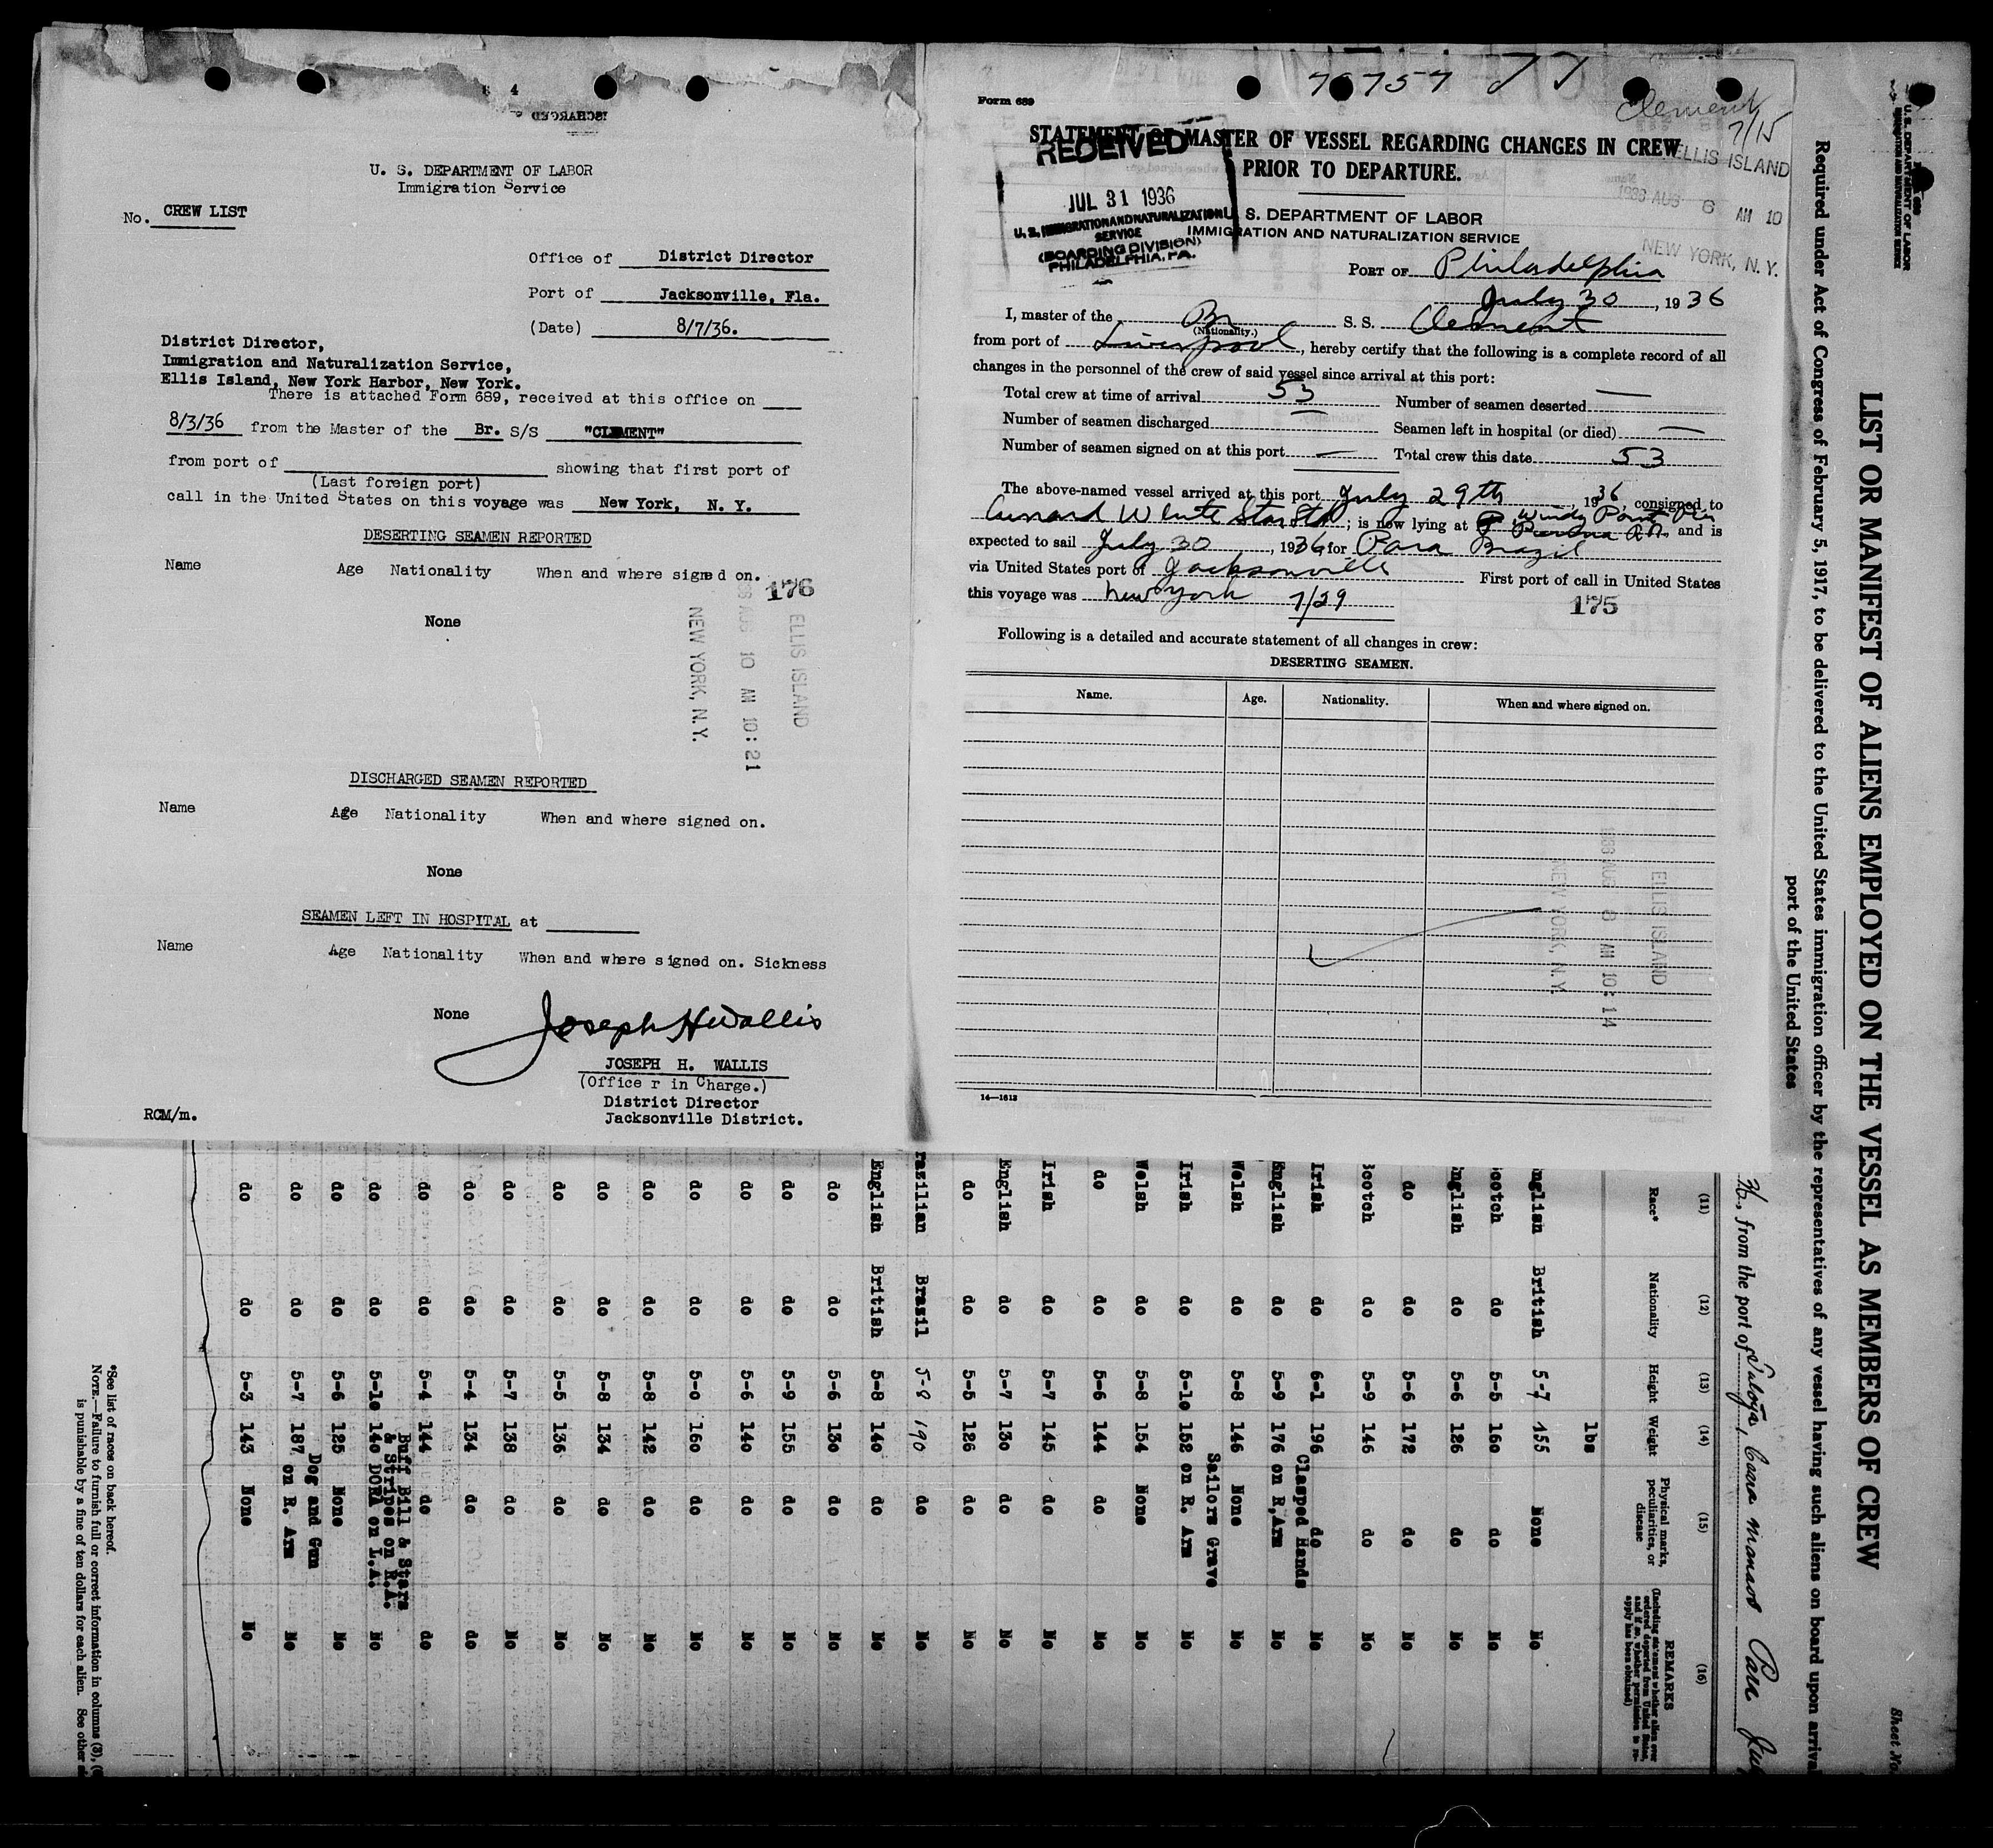 U. S. DEPARTMENT OF LABOR
Immigration Service
No. CREW LIST
Office of District Director
Port of Jacksonville, Fla.
(Date) 8/7/36.
District Director,
Immigration and Naturalization Service,
Ellis Island, New York Harbor, New York.
There is attached Form 689, received at this office on
8/3/36 from the Master of the Br. S/S "CLEMENT"
from port of showing that first port of
(Last foreign port)
call in the United States on this voyage was New York, N. Y.
DESERTING SEAMEN REPORTED
Name Age Nationality When and where signed on.
176
None
ELLIS ISLAND
AUG 10 AM 10:21
NEW YORK, N.Y.
DISCHARGED SEAMEN REPORTED
Name Age Nationality When and where signed on.
None
SEAMEN LEFT IN HOSPITAL at
Name Age Nationality When and where signed on. Sickness
None
Joseph H Wallis
JOSEPH H. WALLIS
(Officer in Charge.)
District Director
Jacksonville District.
RCM/m.
77
Form 689
Clement
7/15
STATEMENT OF MASTER OF VESSEL REGARDING CHANGES IN CREW
PRIOR TO DEPARTURE.
RECEIVED
JUL 31 1936
U. S. IMMIGRATION AND NATURALIZATION
SERVICE
(BOARDING DIVISION)
PHILADELPHIA, PA.
ELLIS ISLAND
1936 AUG 6 AM 10
NEW YORK, N.Y.
U. S. DEPARTMENT OF LABOR
IMMIGRATION AND NATURALIZATION SERVICE
PORT OF Philadelphia
July 30, 1936
I, master of the Br S. S. Clement
(Nationality.)
from port of Liverpool, hereby certify that the following is a complete record of all
changes in the personnel of the crew of said vessel since arrival at this port:
Total crew at time of arrival 53 Number of seamen deserted —
Number of seamen discharged — Seamen left in hospital (or died) —
Number of seamen signed on at this port — Total crew this date 53
The above-named vessel arrived at this port July 29th, 1936, consigned to
Cunard White Star Ltd; is now lying at and is
expected to sail July 30, 1936 for Para Brazil
via United States port of Jacksonville First port of call in United States
this voyage was New York 7/29
175
Following is a detailed and accurate statement of all changes in crew:
DESERTING SEAMEN.
Name. Age. Nationality. When and where signed on.
ELLIS ISLAND
AM 10:14
NEW YORK, N.Y.
14—1613
U. S. DEPARTMENT OF LABOR
IMMIGRATION AND NATURALIZATION SERVICE
Sheet No.
LIST OR MANIFEST OF ALIENS EMPLOYED ON THE VESSEL AS MEMBERS OF CREW
Required under Act of Congress of February 5, 1917, to be delivered to the United States immigration officer by the representatives of any vessel having such aliens on board upon arrival
port of the United States
, from the port of
(11) (12) (13) (14) (15) (16)
Race* Nationality Height Weight Physical marks, peculiarities, or disease REMARKS
(Including statement whether alien ever ordered deported from United States, and if so, whether permission to reapply has been obtained)
lbs
nglish British 5-7 155 None No
cotch do 5-5 160 do No
nglish do 5-6 126 do No
do do 5-6 172 do No
Scotch do 5-9 146 do No
Irish do 6-1 196 do No
Clasped Hands
English do 5-9 176 on R.Arm No
Welsh do 5-8 146 None No
Sailors Grave
Irish do 5-10 152 on R. Arm No
Welsh do 5-8 154 None No
do do 5-6 144 do No
Irish do 5-7 145 do No
English do 5-7 130 do No
do do 5-5 126 do No
razilian Brazil 5-8 190 do No
English British 5-8 140 do No
do do 5-6 130 do No
do do 5-9 155 do No
do do 5-6 140 do No
do do 5-0 160 do No
do do 5-8 142 do No
do do 5-8 134 do No
do do 5-5 136 do No
do do 5-7 138 do No
do do 5-4 134 do do
do do 5-4 144 do do
Buff Bill & Stars
& Stripes on R.A.
do do 5-10 140 DORA on L.A. No
do do 5-6 125 None No
Dog and Gun
do do 5-7 187 on R. Arm No
do do 5-3 143 None No
*See list of races on back hereof.
NOTE.—Failure to furnish full or correct information in columns (3), (
is punishable by a fine of ten dollars for each alien. See other